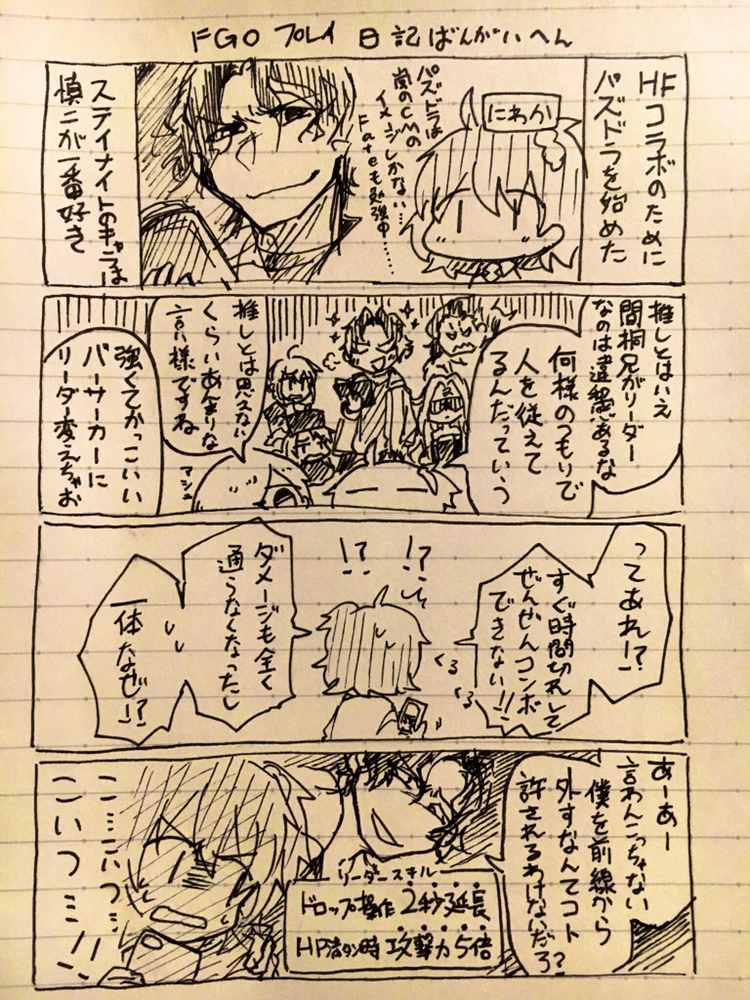 FGOプレイ日記ばんがいへん
HFコラボのために
パズドラを始めた
にわか
パズドラは
嵐のCMの
イメージしかない…
Fateも勉強中……
ステイナイトのキャラは
慎二が一番好き
推しとはいえ
間桐兄がリーダー
なのは違和感あるな
何様のつもりで
人を従えて
るんだっていう
推しとは思えない
くらいあんまりな
言い様ですね
マシュ
強くてかっこいい
バーサーカーに
リーダー変えちゃお
ってあれ!?
すぐ時間切れして
ぜんぜんコンボ
できない!!
!?
!?
くる
くる
ダメージも全く
通らなくなったし
一体なぜ!?
あーあー
言わんこっちゃない
僕を前線から
外すなんてコト
許されるわけないだろ?
リーダースキル
ドロップ操作2秒延長
HP満タン時攻撃力5倍
こ…こいつ…
こいつ…!!